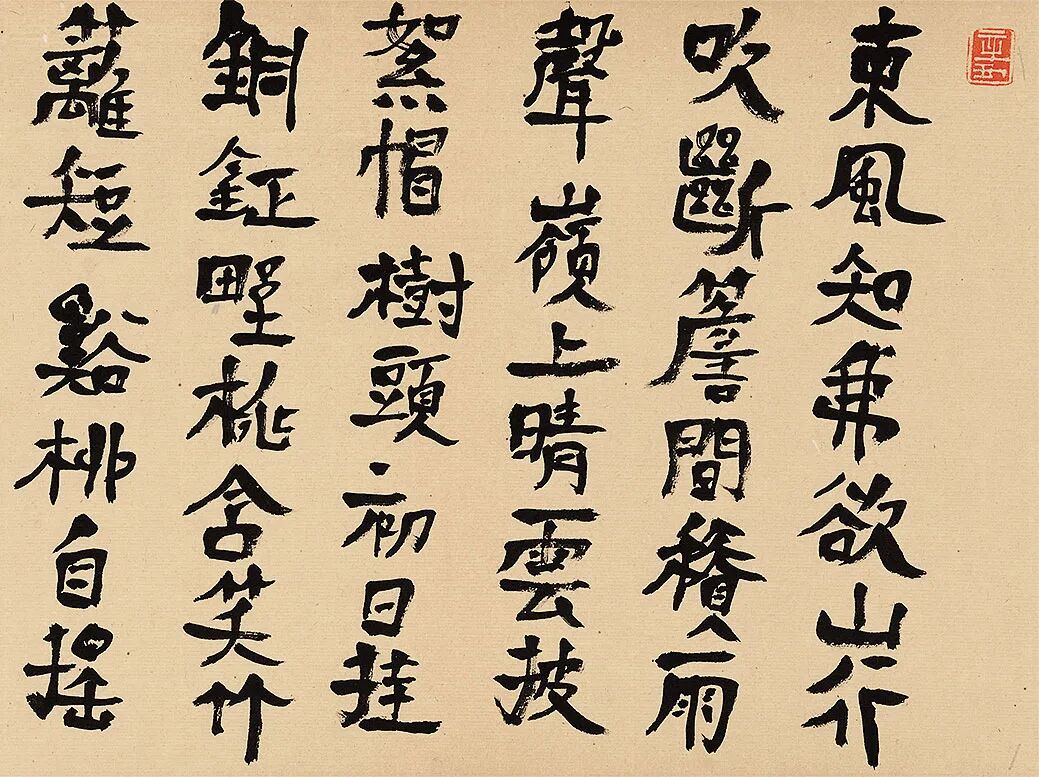 東風知我欲山行
吹斷簷間積雨
聲嶺上晴雲披
絮帽樹頭初日挂
銅鉦野桃含笑竹
籬短谿柳自搖